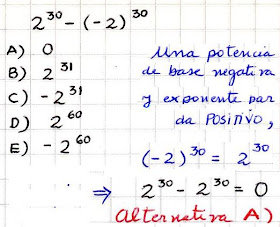 2³⁰ − (−2)³⁰
A) 0
B) 2³¹
C) −2³¹
D) 2⁶⁰
E) −2⁶⁰
Una potencia
de base negativa
y exponente par
da POSITIVO,
(−2)³⁰ = 2³⁰
⇒ 2³⁰ − 2³⁰ = 0
Alternativa A)